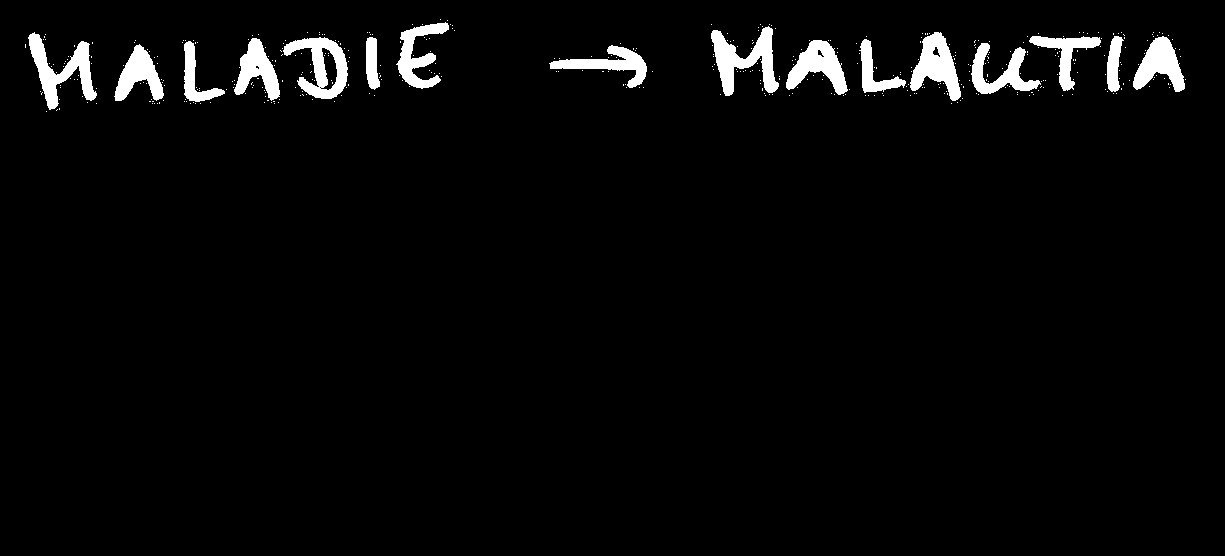 MALADIE → MALAUTIA